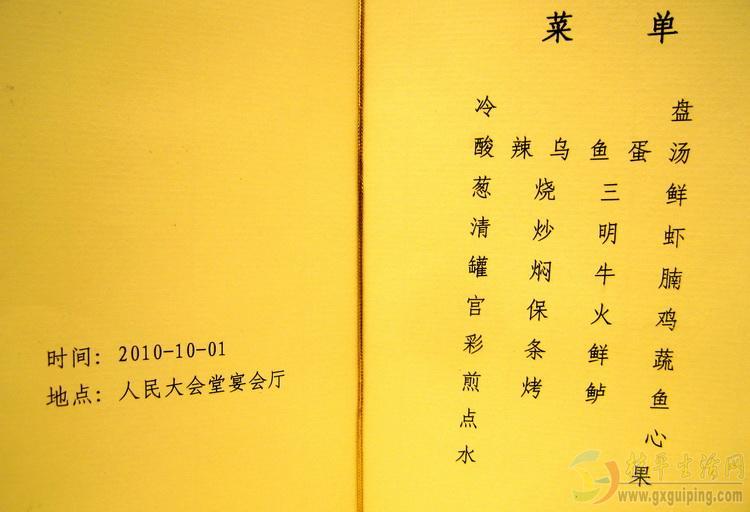 菜单
冷盘
酸辣乌鱼蛋汤
葱烧三鲜
清炒明虾
罐焖牛腩
宫保火鸡
彩条鲜蔬
煎烤鲈鱼
点心
水果
时间：2010-10-01
地点：人民大会堂宴会厅
桂平生活网
www.gxguiping.com